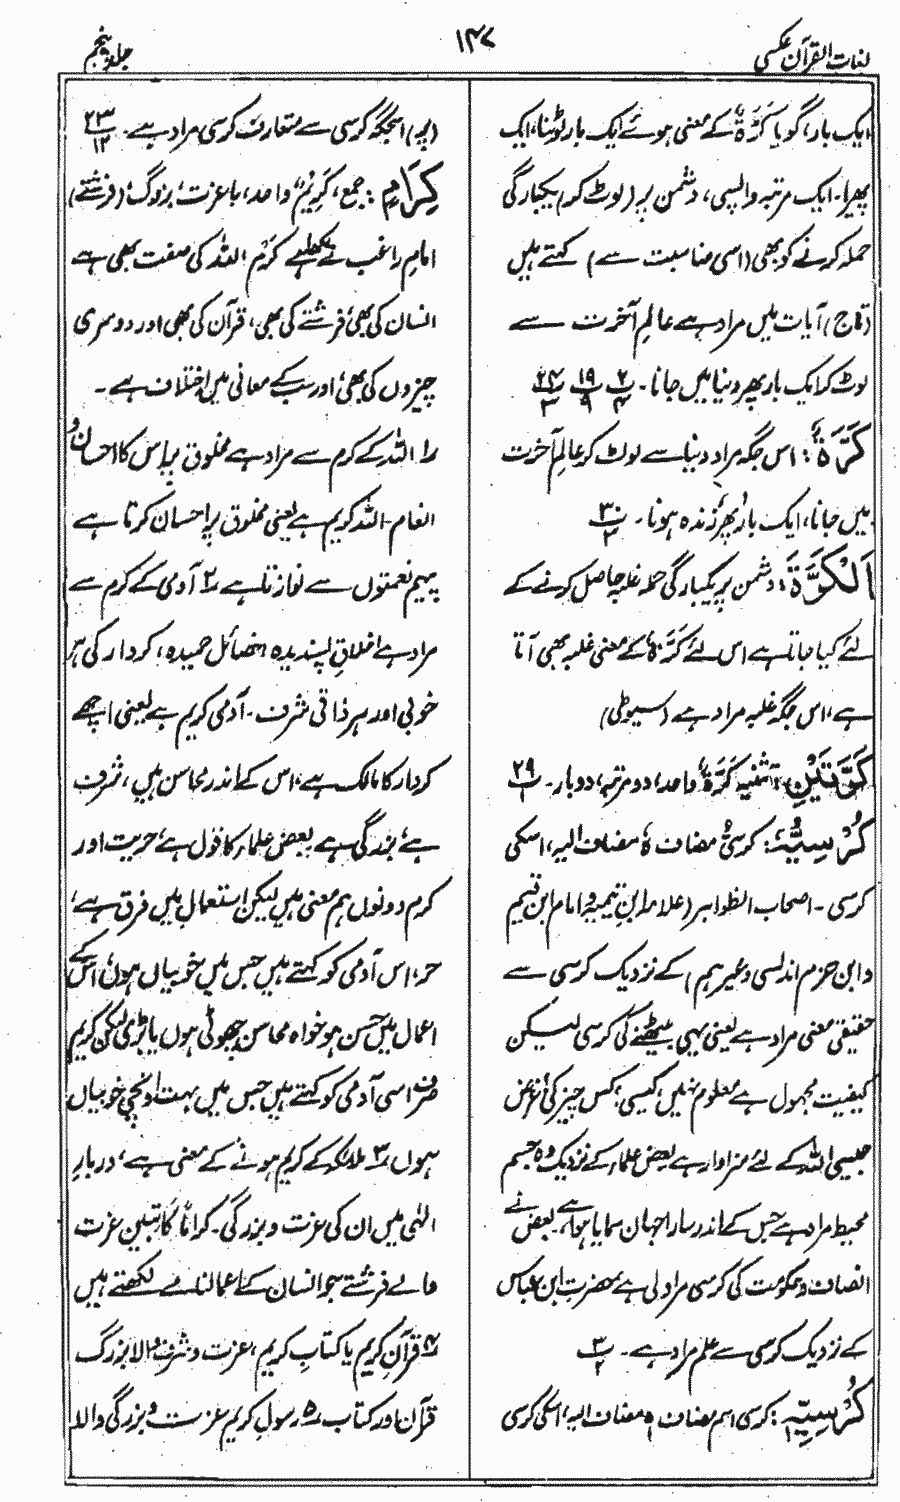 لغات القرآن عکسی
۱۴۷
جلد پنجم
ایک بار، گویا کَرَّۃٌ کے معنی ہوئے ایک بار لوٹنا، ایک
پھیرا۔ ایک مرتبہ واپسی، دشمن پر (لوٹ کر) یکبارگی
حملہ کرنے کو بھی (اسی مناسبت سے) کہتے ہیں
(تاج) آیات میں مراد ہے عالمِ آخرت سے
لوٹ کر ایک بار پھر دنیا میں جانا۔ ۲/۴ ۱۹/۹ ۲۴/۳
کَرَّۃٌ: اس جگہ مراد دنیا سے لوٹ کر عالمِ آخرت
میں جانا، ایک بار پھر زندہ ہونا۔ ۳۰/۳
اَلْکَرَّۃَ: دشمن پر یکبارگی حملہ غلبہ حاصل کرنے کے
لئے کیا جاتا ہے اس لئے کَرَّۃٌ کے معنی غلبہ بھی آتا
ہے، اس جگہ غلبہ مراد ہے (سیوطی)
کَرَّتَیْنِ: تثنیہ کَرَّۃٌ واحد، دو مرتبہ، دوبار۔ ۲۹/۱
کُرْسِیُّہٗ: کرسیُّ مضاف ہٗ مضاف الیہ، اسکی
کرسی۔ اصحاب الظواہر (علامہ ابن تیمیہ و امام ابن قیم
و ابن حزم اندلسی وغیرہم) کے نزدیک کرسی سے
حقیقی معنی مراد ہے یعنی یہی بیٹھنے کی کرسی لیکن
کیفیت مجہول ہے معلوم نہیں کیسی، کس چیز کی غرض
جیسی اللہ کے لئے سزاوار ہے بعض علماء کے نزدیک وہ جسم
محیط مراد ہے جس کے اندر سارا جہان سمایا ہوا ہے۔ بعض نے
انصاف و حکومت کی کرسی مراد لی ہے حضرت ابن عباس
کے نزدیک کرسی سے علم مراد ہے۔ ۳/۲
کُرْسِیِّہٖ: کرسی اسم مضاف ہٖ مضاف الیہ، اسکی کرسی
(پر) اس جگہ کرسی سے متعارف کرسی مراد ہے۔ ۲۳/۱۲
کِرَامٍ: جمع، کَرِیْمٌ واحد، با عزت، بزرگ، (فرشتے)
امام راغب نے لکھا ہے کرم اللہ کی صفت بھی ہے
انسان کی بھی، فرشتے کی بھی، قرآن کی بھی اور دوسری
چیزوں کی بھی، اور سب کے معانی میں اختلاف ہے۔
ر۱ اللہ کے کرم سے مراد ہے مخلوق پر اس کا احسان و
انعام۔ اللہ کریم ہے یعنی مخلوق پر احسان کرتا ہے
پیہم نعمتوں سے نوازتا ہے ر۲ آدمی کے کرم سے
مراد ہے اخلاقِ پسندیدہ، خصائل حمیدہ، کردار کی ہر
خوبی اور ہر ذاتی شرف۔ آدمی کریم ہے یعنی اچھے
کردار کا مالک ہے، اس کے اندر محاسن ہیں، شرف
ہے، بزرگی ہے بعض علماء کا قول ہے، حریت اور
کرم دونوں ہم معنی ہیں لیکن استعمال میں فرق ہے،
حر، اس آدمی کو کہتے ہیں جس میں خوبیاں ہوں، اس کے
اعمال میں حسن ہو خواہ محاسن چھوٹی ہوں یا بڑی لیکن کریم
صرف اسی آدمی کو کہتے ہیں جس میں بہت اونچی خوبیاں
ہوں، ر۳ ملائکہ کے کریم ہونے کے معنی ہے، دربارِ
الٰہی میں ان کی عزت و بزرگی۔ کِرَامًا کَاتِبِیْن عزت
والے فرشتے جو انسان کے اعمالنامے لکھتے ہیں
ر۴ قرآن کریم یا کتاب کریم، عزت و شرف والا بزرگ
قرآن اور کتاب، ر۵ رسول کریم عزت و بزرگی والا